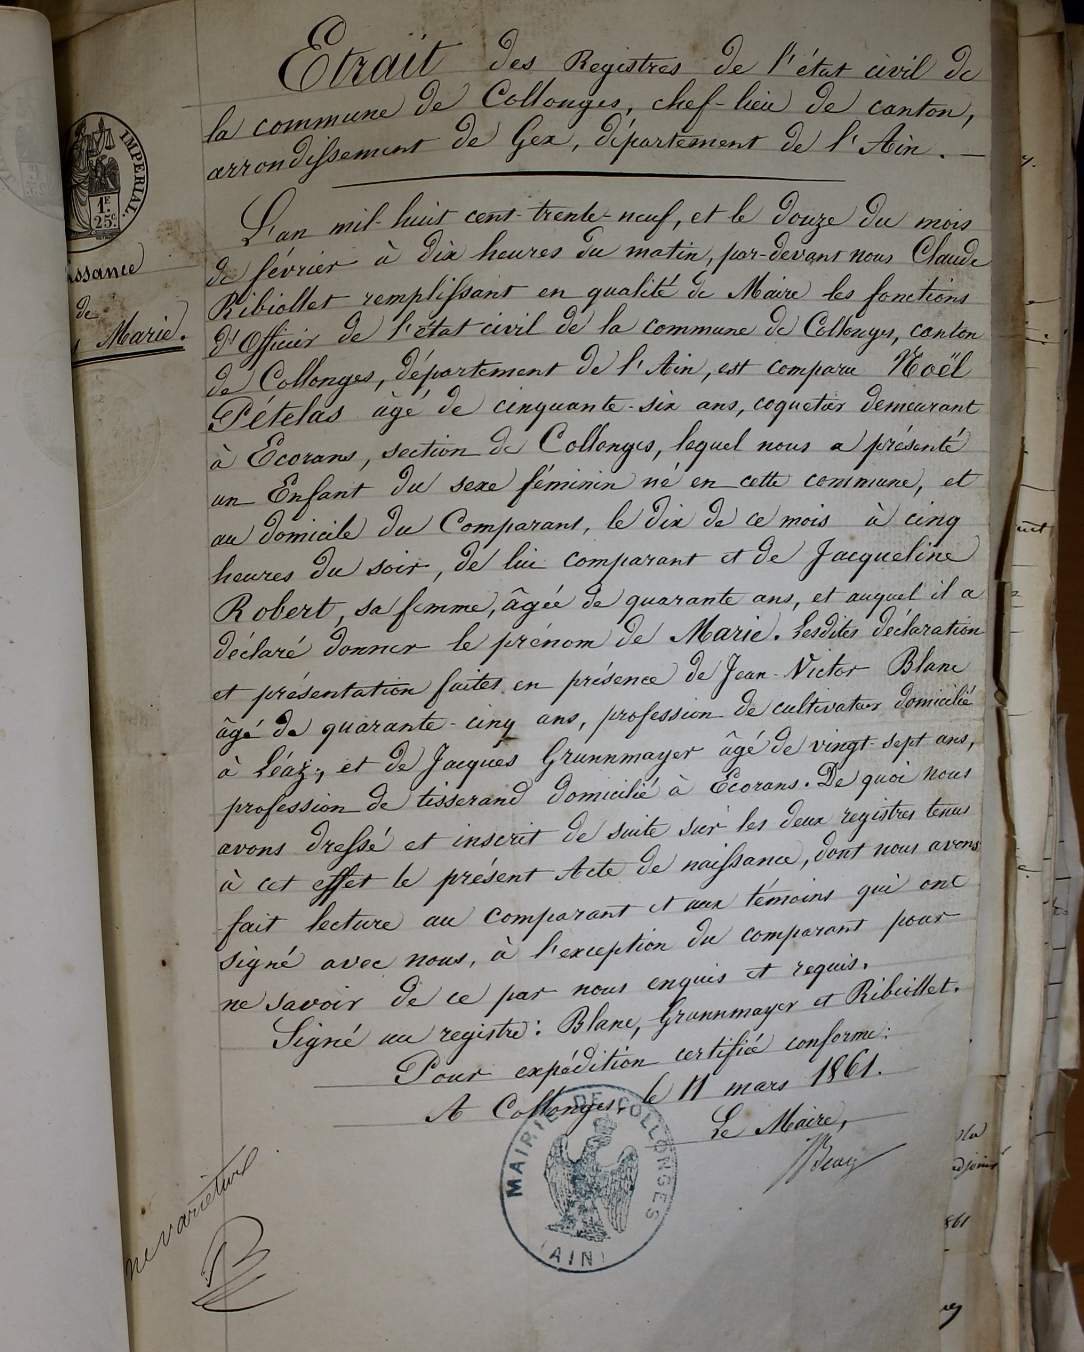 Etrait des Registres de l'état civil de
la commune de Collonges, chef-lieu de canton,
arrondissement de Gex, département de l'Ain.
IMPERIAL.
1F
25c.
issance
de
Marie.
L'an mil-huit cent-trente-neuf, et le douze du mois
de février à dix heures du matin, par-devant nous Claude
Ribiollet remplissant en qualité de Maire les fonctions
d'Officier de l'état civil de la commune de Collonges, canton
de Collonges, département de l'Ain, est comparu Noël
Pételas âgé de cinquante-six ans, coquetier demeurant
à Ecorans, section de Collonges, lequel nous a présenté
un Enfant du sexe féminin né en cette commune, et
au domicile du Comparant, le dix de ce mois à cinq
heures du soir, de lui comparant et de Jacqueline
Robert, sa femme, âgée de quarante ans, et auquel il a
déclaré donner le prénom de Marie. Lesdites déclaration
et présentation faites en présence de Jean-Victor Blanc
âgé de quarante-cinq ans, profession de cultivateur domicilié
à Léaz, et de Jacques Grunnmayer âgé de vingt-sept ans,
profession de tisserand domicilié à Ecorans. De quoi nous
avons dressé et inscrit de suite sur les deux registres tenus
à cet effet le présent Acte de naissance, dont nous avons
fait lecture au comparant et aux témoins qui ont
signé avec nous, à l'exception du comparant pour
ne savoir de ce par nous enquis et requis.
Signé au registre: Blanc, Grunnmayer et Ribiollet.
Pour expédition certifié conforme:
A Collonges, le 11 mars 1861.
Le Maire,
MAIRIE DE COLLONGES
(AIN)
ne varietur